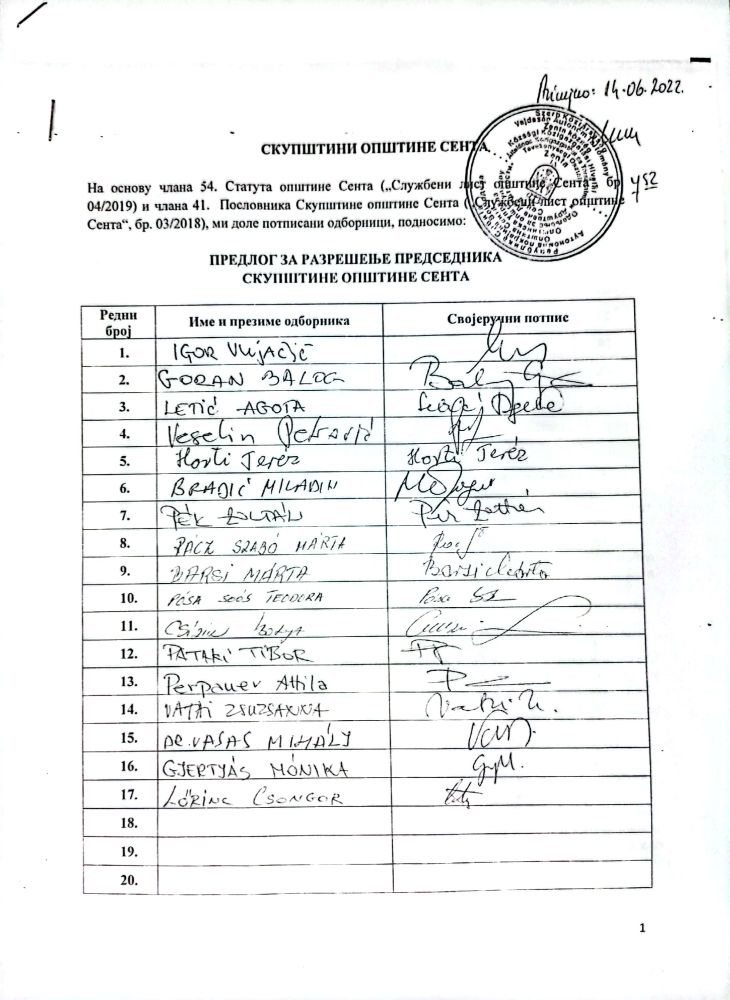 Примљено: 14.06.2022.
СКУПШТИНИ ОПШТИНЕ СЕНТА
На основу члана 54. Статута општине Сента („Службени лист општине Сента“, бр.
04/2019) и члана 41. Пословника Скупштине општине Сента („Службени лист општине
Сента“, бр. 03/2018), ми доле потписани одборници, подносимо:
ПРЕДЛОГ ЗА РАЗРЕШЕЊЕ ПРЕДСЕДНИКА
СКУПШТИНЕ ОПШТИНЕ СЕНТА
Редни број Име и презиме одборника Својеручни потпис
1. IGOR VUJAČIĆ
2. GORAN BALOG
3. LETIĆ AGOTA
4. Veselin Petrović
5. Horti Teréz Horti Teréz
6. BRADIĆ MILADIN
7. PÉK ZOLTÁN Pék Zoltán
8. RÁCZ SZABÓ MÁRTA
9. BARSI MÁRTA Barsi Márta
10. PÓSA SOÓS TEODORA Pósa
11.
12. PATAKI TIBOR PT
13. Perpauer Attila
14. VAJTHI ZSUZSANNA
15. DR. VASAS MIHÁLY
16. GJERTYÁS MÓNIKA GyM.
17. LŐRINC CSONGOR
18.
19.
20.
1